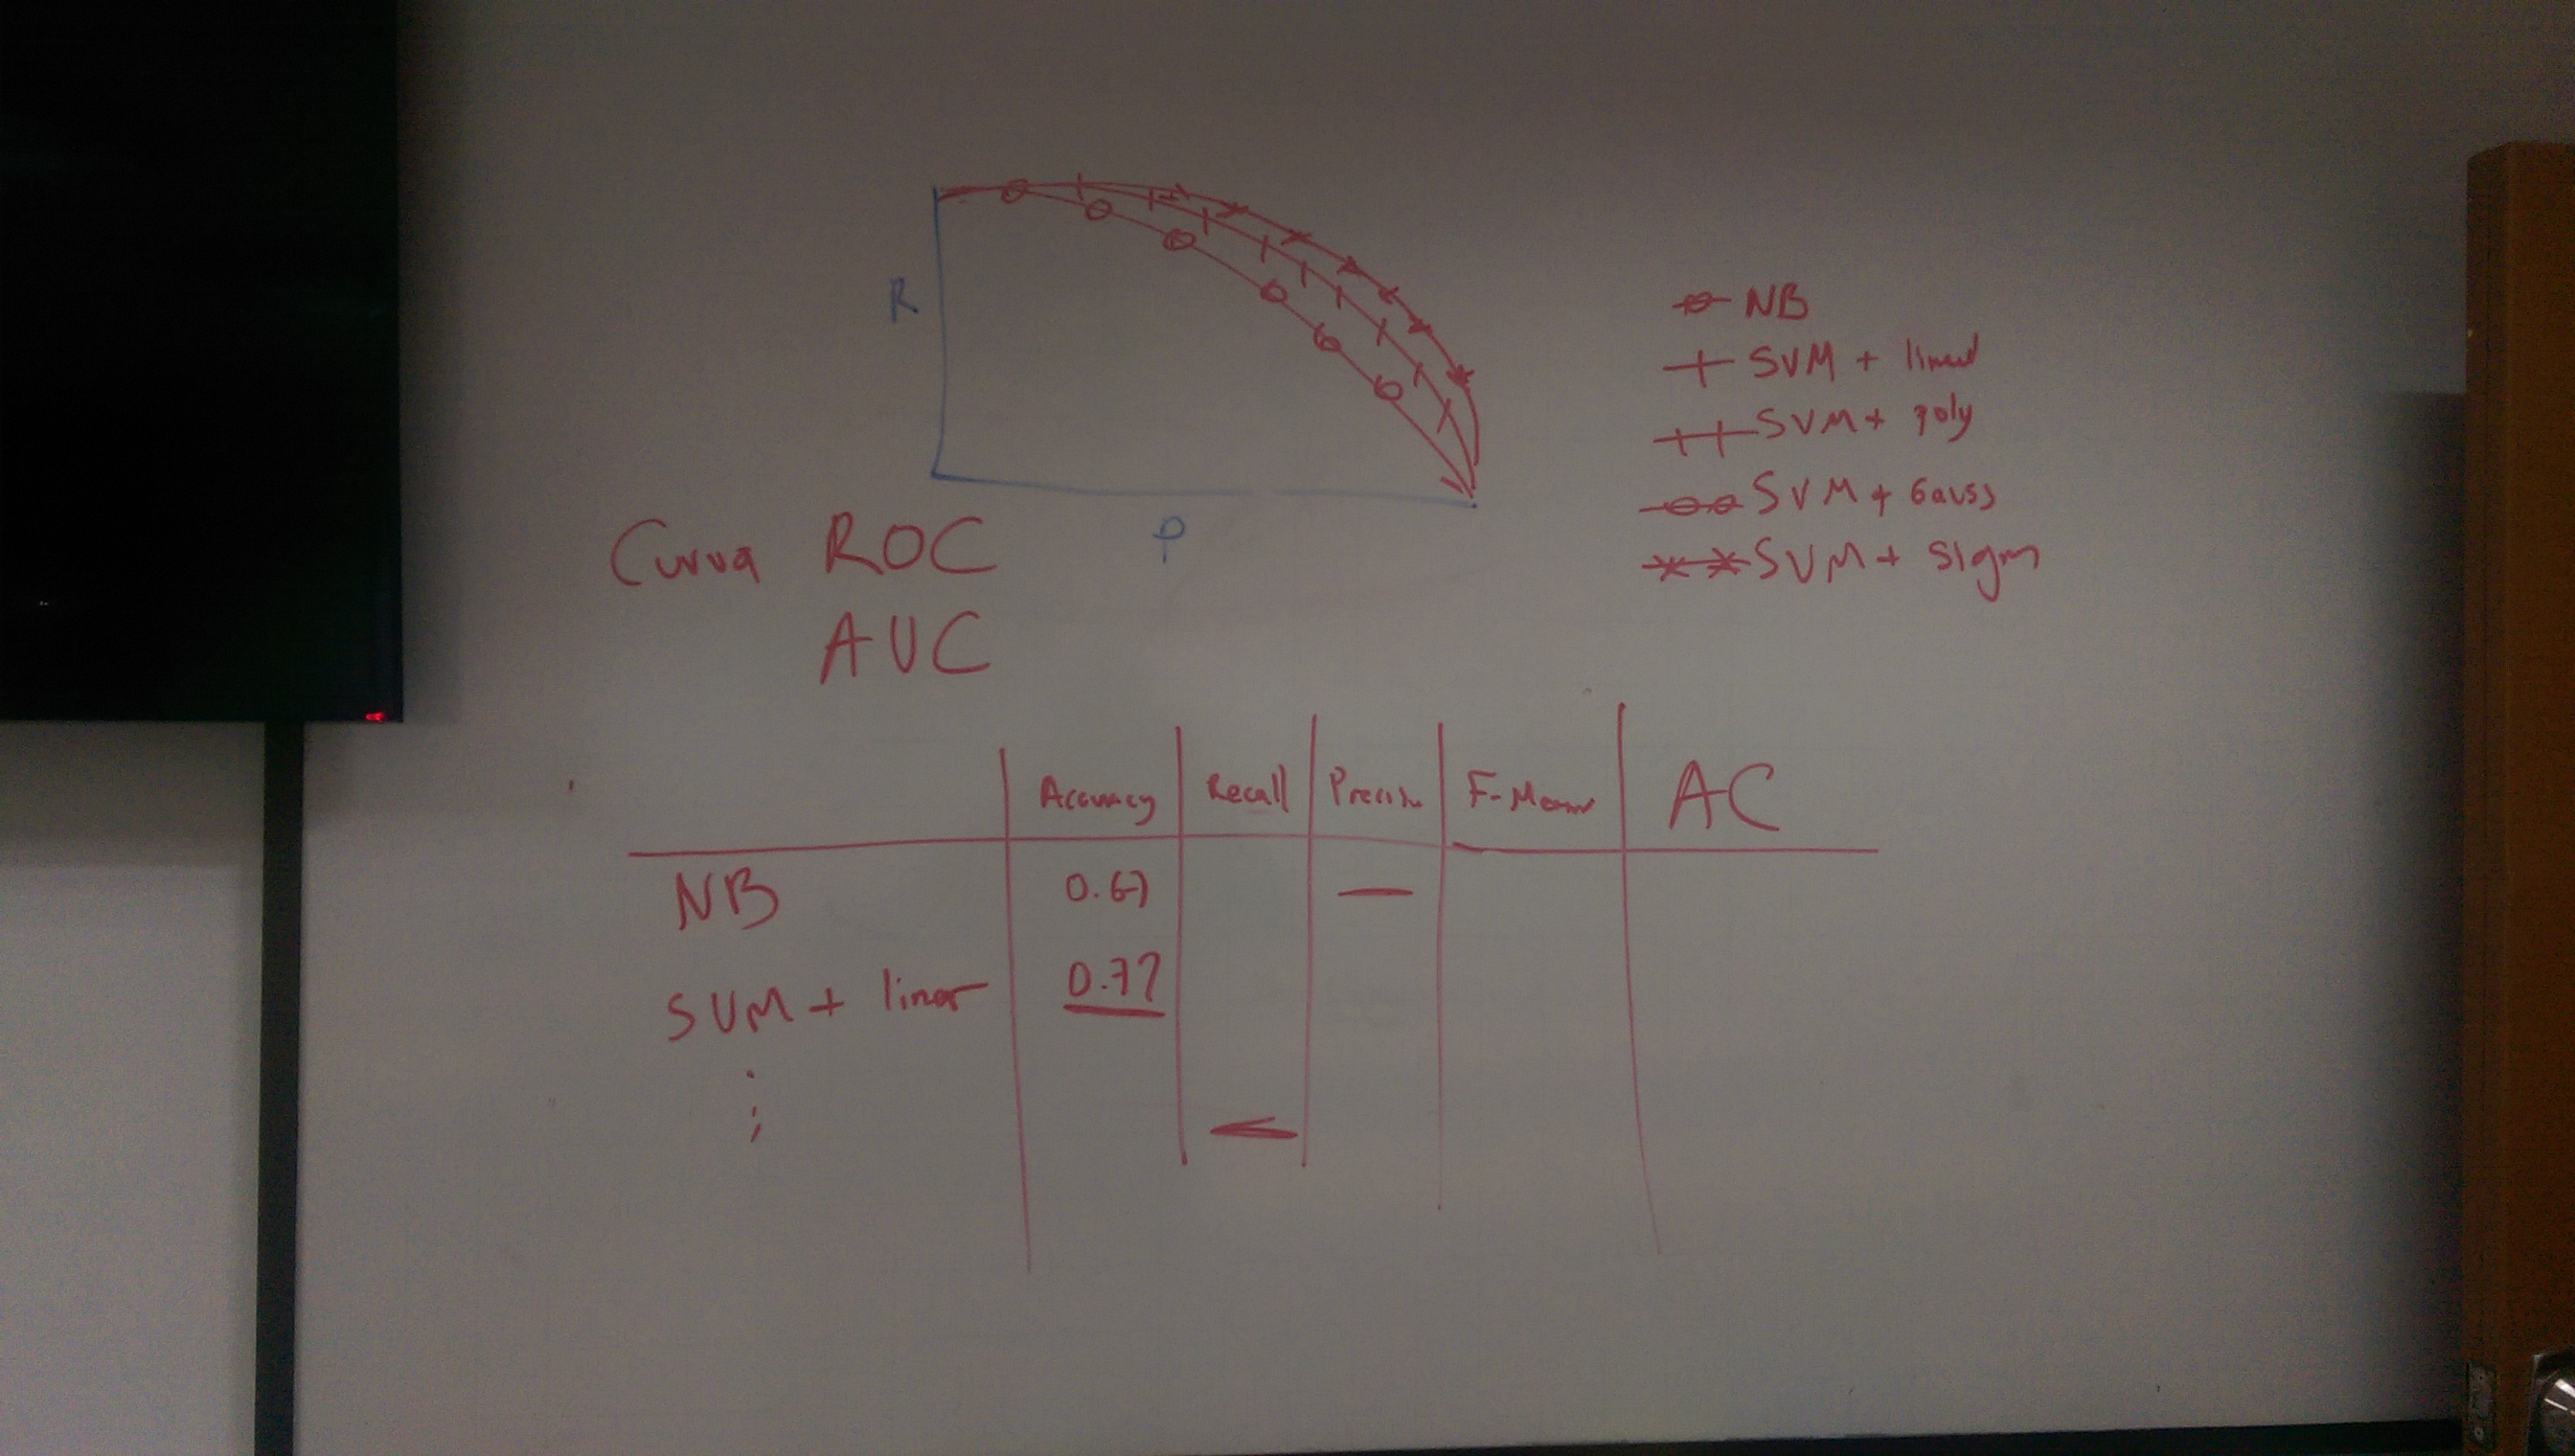 R
P
NB
SVM + lineal
SVM + poly
SVM + Gauss
SVM + sigm
Curva ROC
AUC
Accuracy Recall F-Meas AC
NB 0.67
SVM + linear 0.77